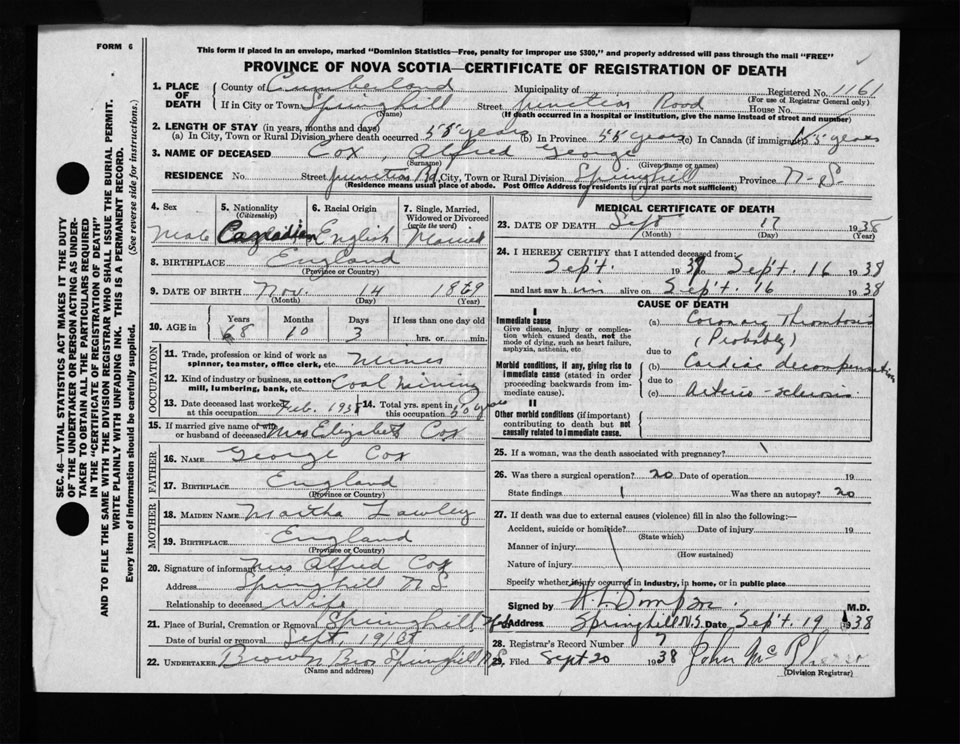 FORM 6
This form if placed in an envelope, marked "Dominion Statistics—Free, penalty for improper use $300," and properly addressed will pass through the mail "FREE"
PROVINCE OF NOVA SCOTIA—CERTIFICATE OF REGISTRATION OF DEATH
1. PLACE OF DEATH
County of Cumberland Municipality of Registered No. 1161
(For use of Registrar General only)
If in City or Town Springhill Street Junction Road House No.
(Name) (If death occurred in a hospital or institution, give the name instead of street and number)
2. LENGTH OF STAY (in years, months and days)
(a) In City, Town or Rural Division where death occurred 55 years (b) In Province 55 years (c) In Canada (if immigrant) 55 years
3. NAME OF DECEASED Cox, Alfred George
(Surname) (Given name or names)
RESIDENCE No. Street Junction Rd. City, Town or Rural Division Springhill Province N-S-
(Residence means usual place of abode. Post Office Address for residents in rural parts not sufficient)
4. Sex
Male
5. Nationality
(Citizenship)
Canadian
6. Racial Origin
English
7. Single, Married, Widowed or Divorced
(write the word)
Married
8. BIRTHPLACE England
(Province or Country)
9. DATE OF BIRTH Nov. 14 1869
(Month) (Day) (Year)
10. AGE in
Years Months Days If less than one day old
68 10 3 hrs. or min.
OCCUPATION
11. Trade, profession or kind of work as spinner, teamster, office clerk, etc. Miner
12. Kind of industry or business, as cotton mill, lumbering, bank, etc. Coal Mining
13. Date deceased last worked at this occupation Feb. 1938
14. Total yrs. spent in this occupation 50 years
15. If married give name of wife or husband of deceased Mrs Elizabeth Cox
FATHER
16. NAME George Cox
17. BIRTHPLACE England
(Province or Country)
MOTHER
18. MAIDEN NAME Martha Lawley
19. BIRTHPLACE England
(Province or Country)
20. Signature of informant Mrs Alfred Cox
Address Springhill N S
Relationship to deceased Wife
21. Place of Burial, Cremation or Removal Springhill
Date of burial or removal Sept, 19/38
22. UNDERTAKER Brown Bros Springhill N.S.
(Name and address)
MEDICAL CERTIFICATE OF DEATH
23. DATE OF DEATH Sept 17 1938
(Month) (Day) (Year)
24. I HEREBY CERTIFY that I attended deceased from:
Sept. 1938 to Sept. 16 1938
and last saw him alive on Sept. 16 1938
CAUSE OF DEATH
I
Immediate cause
Give disease, injury or complication which caused death, not the mode of dying, such as heart failure, asphyxia, asthenia, etc
(a) Coronary Thrombosis
(Probably)
due to
Morbid conditions, if any, giving rise to immediate cause (stated in order proceeding backwards from immediate cause).
(b) Cardiac decompensation
due to
(c) Arterio sclerosis
II
Other morbid conditions (if important) contributing to death but not causally related to immediate cause.
25. If a woman, was the death associated with pregnancy?
26. Was there a surgical operation? no Date of operation 19
State findings Was there an autopsy? no
27. If death was due to external causes (violence) fill in also the following:—
Accident, suicide or homicide? Date of injury 19
(State which)
Manner of injury
(How sustained)
Nature of injury
Specify whether injury occurred in industry, in home, or in public place
Signed by M.D.
Address Springhill N.S. Date Sept. 19 1938
28. Registrar's Record Number 7
29. Filed Sept 20 1938 John
(Division Registrar)
SEC. 46—VITAL STATISTICS ACT MAKES IT THE DUTY
OF THE UNDERTAKER OR PERSON ACTING AS UNDERTAKER TO OBTAIN ALL THE PARTICULARS REQUIRED
IN THE "CERTIFICATE OF REGISTRATION OF DEATH"
AND TO FILE THE SAME WITH THE DIVISION REGISTRAR WHO SHALL ISSUE THE BURIAL PERMIT.
WRITE PLAINLY WITH UNFADING INK. THIS IS A PERMANENT RECORD.
Every item of information should be carefully supplied. (See reverse side for instructions.)